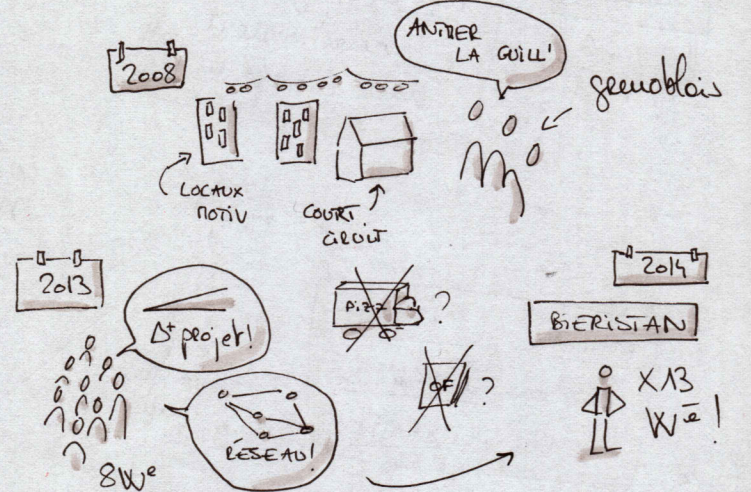 2008
ANIMER
LA GUILL'
grenoblois
LOCAUX
MOTIV
COURT
CIRCUIT
2013
Δ+ projet!
RÉSEAU!
8Wᵉ
PIZZ
?
OF
?
2014
BIERISTAN
X13
Wᵉ!